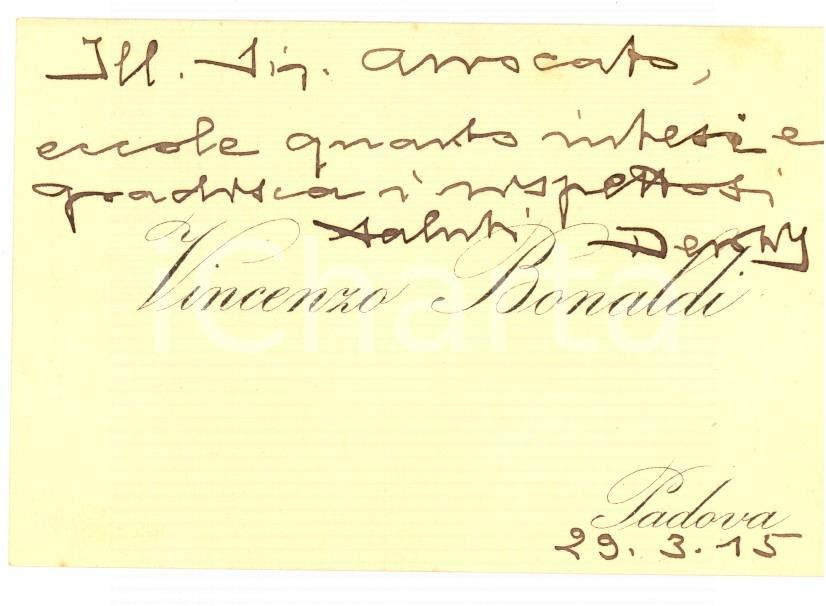 Ill. Sig. Avvocato,
eccole quanto intesi e
gradisca i rispettosi
saluti
Vincenzo Bonaldi
iCharta
Padova
29. 3. 15